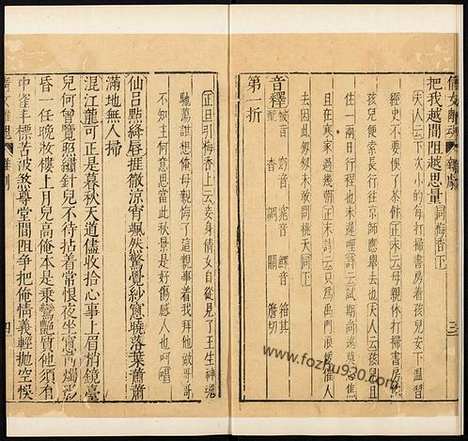 倩女離魂 雜劇 三
把我越間阻越思量 同梅香下
夫人云 下次小的每打掃書房着孩兒安下溫習
經史不要誤了茶飯 正末云 母親休打掃書房您
孩兒便索長行往京師應舉去也 夫人云 孩兒且
住一兩日行程也未遲哩 詩云 試期尚遠莫心焦且在寒
家過幾朝 正末詩云 只爲禹門浪煖催人
去因此匆匆未敢問桃夭 同下
音釋
第一折
正旦引梅香上云 妾身倩女自從見了王生神魂
馳蕩誰想俺母親悔了這親事着我拜他做哥哥
不知主何意思當此秋景是好傷感人也呵 唱
仙呂點絳唇捱徹涼宵颯然驚覺紗窗曉落葉蕭蕭
滿地無人掃
混江龍可正是暮秋天道儘收拾心事上眉梢鏡臺
兒何曾覽照綉針兒不待拈着常恨夜坐窗前燭影
昏一任晚妝樓上月兒高俺本是乘鸞艷質他須有
中雀丰標苦被煞尊堂間阻爭把俺情義輕拋空悞
倩女離魂 雜劇 四
www.fozhu920.com